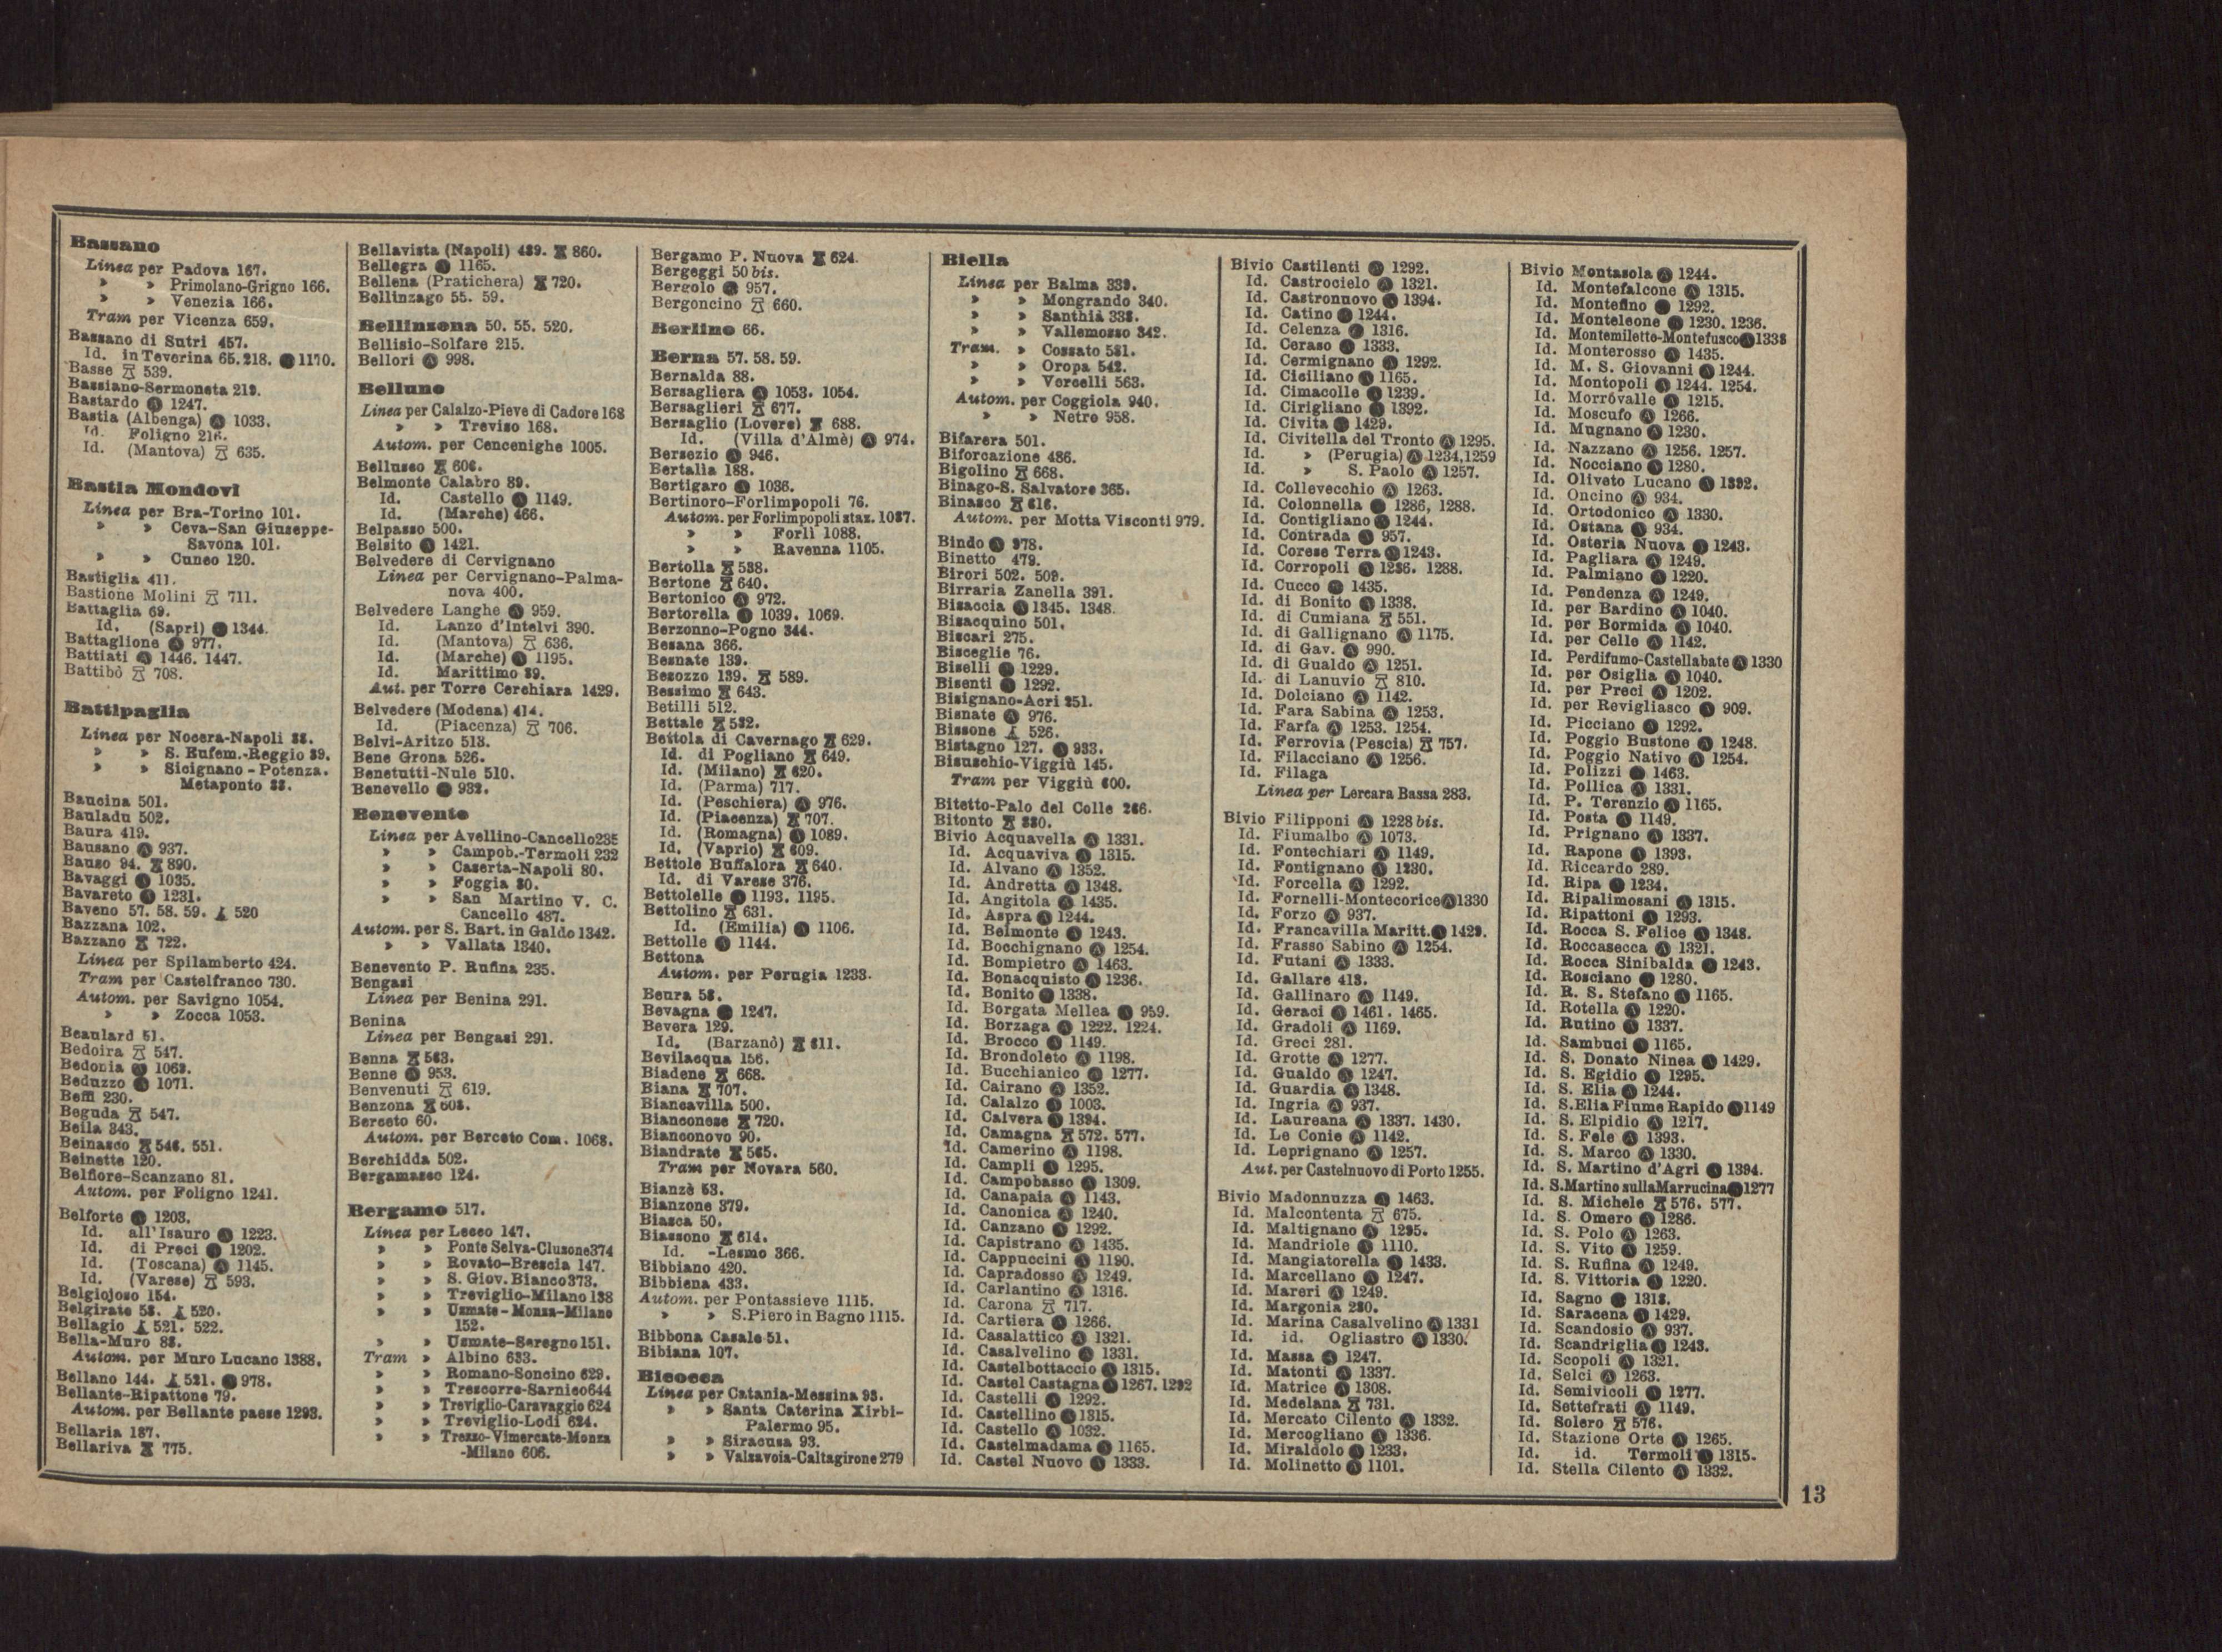 Bassano
Linea per Padova 167.
» » Primolano-Grigno 166.
» » Venezia 166.
Tram per Vicenza 659.
Bassano di Sutri 457.
Id. in Teverina 65. 218. Ⓐ 1170.
Basse 539.
Bassiano-Sermoneta 219.
Bastardo Ⓐ 1247.
Bastia (Albenga) Ⓐ 1033.
Id. Foligno 216.
Id. (Mantova) 635.
Bastia Mondovì
Linea per Bra-Torino 101.
» » Ceva-San Giuseppe-
Savona 101.
» » Cuneo 120.
Bastiglia 411.
Bastione Molini 711.
Battaglia 69.
Id. (Sapri) Ⓐ 1344.
Battaglione Ⓐ 977.
Battiati Ⓐ 1446. 1447.
Battibò 708.
Battipaglia
Linea per Nocera-Napoli 88.
» » S. Eufem.-Reggio 89.
» » Sicignano-Potenza.
Metaponto 88.
Baucina 501.
Bauladu 502.
Baura 419.
Bausano Ⓐ 937.
Bauso 94. 890.
Bavaggi Ⓐ 1035.
Bavareto Ⓐ 1231.
Baveno 57. 58. 59. 520
Bazzana 102.
Bazzano 722.
Linea per Spilamberto 424.
Tram per Castelfranco 730.
Autom. per Savigno 1054.
» » Zocca 1053.
Beaulard 51.
Bedoira 547.
Bedonia Ⓐ 1069.
Beduzzo Ⓐ 1071.
Beffi 230.
Beguda 547.
Beila 343.
Beinasco 546. 551.
Beinette 120.
Belfiore-Scanzano 81.
Autom. per Foligno 1241.
Belforte Ⓐ 1203.
Id. all'Isauro Ⓐ 1223.
Id. di Preci Ⓐ 1202.
Id. (Toscana) Ⓐ 1145.
Id. (Varese) 593.
Belgiojoso 154.
Belgirate 58. 520.
Bellagio 521. 522.
Bella-Muro 88.
Autom. per Muro Lucano 1388.
Bellano 144. 521. Ⓐ 978.
Bellante-Ripattone 79.
Autom. per Bellante paese 1293.
Bellaria 187.
Bellariva 775.
Bellavista (Napoli) 489. 860.
Bellegra Ⓐ 1165.
Bellena (Pratichera) 720.
Bellinzago 55. 59.
Bellinzona 50. 55. 520.
Bellisio-Solfare 215.
Bellori Ⓐ 998.
Belluno
Linea per Calalzo-Pieve di Cadore 168
» » Treviso 168.
Autom. per Cencenighe 1005.
Bellusco 606.
Belmonte Calabro 89.
Id. Castello Ⓐ 1149.
Id. (Marche) 466.
Belpasso 500.
Belsito Ⓐ 1421.
Belvedere di Cervignano
Linea per Cervignano-Palma-
nova 400.
Belvedere Langhe Ⓐ 959.
Id. Lanzo d'Intelvi 390.
Id. (Mantova) 636.
Id. (Marche) Ⓐ 1195.
Id. Marittimo 89.
Aut. per Torre Cerchiara 1429.
Belvedere (Modena) 414.
Id. (Piacenza) 706.
Belvi-Aritzo 513.
Bene Grona 526.
Benetutti-Nule 510.
Benevello Ⓐ 932.
Benevento
Linea per Avellino-Cancello 235
» » Campob.-Termoli 232
» » Caserta-Napoli 80.
» » Foggia 80.
» » San Martino V. C.
Cancello 487.
Autom. per S. Bart. in Galdo 1342.
» » Vallata 1340.
Benevento P. Rufina 235.
Bengasi
Linea per Benina 291.
Benina
Linea per Bengasi 291.
Benna 563.
Benne Ⓐ 953.
Benvenuti 619.
Benzona 608.
Berceto 60.
Autom. per Berceto Com. 1068.
Berchidda 502.
Bergamasco 124.
Bergamo 517.
Linea per Lecco 147.
» » Ponte Selva-Clusone 374
» » Rovato-Brescia 147.
» » S. Giov. Bianco 373.
» » Treviglio-Milano 138
» » Usmate-Monza-Milano
152.
» » Usmate-Seregno 151.
Tram » Albino 633.
» » Romano-Soncino 629.
» » Trescorre-Sarnico 644
» » Treviglio-Caravaggio 624
» » Treviglio-Lodi 624.
» » Trezzo-Vimercate-Monza
-Milano 606.
Bergamo P. Nuova 624.
Bergeggi 50 bis.
Bergolo Ⓐ 957.
Bergoncino 660.
Berlino 66.
Berna 57. 58. 59.
Bernalda 88.
Bersagliera Ⓐ 1053. 1054.
Bersaglieri 677.
Bersaglio (Lovere) 688.
Id. (Villa d'Almè) Ⓐ 974.
Bersezio Ⓐ 946.
Bertalia 188.
Bertigaro Ⓐ 1036.
Bertinoro-Forlimpopoli 76.
Autom. per Forlimpopoli staz. 1087.
» » Forlì 1088.
» » Ravenna 1105.
Bertolla 538.
Bertone 640.
Bertonico Ⓐ 972.
Bertorella Ⓐ 1039. 1069.
Berzonno-Pogno 344.
Besana 366.
Besnate 139.
Besozzo 139. 589.
Bessimo 643.
Betilli 512.
Bettale 532.
Bettola di Cavernago 629.
Id. di Pogliano 649.
Id. (Milano) 620.
Id. (Parma) 717.
Id. (Peschiera) Ⓐ 976.
Id. (Piacenza) 707.
Id. (Romagna) Ⓐ 1089.
Id. (Vaprio) 609.
Bettole Buffalora 640.
Id. di Varese 376.
Bettolelle Ⓐ 1193. 1195.
Bettolino 631.
Id. (Emilia) Ⓐ 1106.
Bettolle Ⓐ 1144.
Bettona
Autom. per Perugia 1233.
Beura 58.
Bevagna Ⓐ 1247.
Bevera 129.
Id. (Barzanò) 611.
Bevilacqua 156.
Biadene 668.
Biana 707.
Biancavilla 500.
Bianconese 720.
Bianconovo 90.
Biandrate 565.
Tram per Novara 560.
Bianzè 53.
Bianzone 379.
Biasca 50.
Biassono 614.
Id. -Lesmo 366.
Bibbiano 420.
Bibbiena 433.
Autom. per Pontassieve 1115.
» » S. Piero in Bagno 1115.
Bibbona Casale 51.
Bibiana 107.
Bicocca
Linea per Catania-Messina 93.
» » Santa Caterina Xirbi-
Palermo 95.
» » Siracusa 93.
» » Valsavoia-Caltagirone 279
Biella
Linea per Balma 339.
» » Mongrando 340.
» » Santhià 338.
» » Vallemosso 342.
Tram. » Cossato 581.
» » Oropa 542.
» » Vercelli 563.
Autom. per Coggiola 940.
» » Netro 958.
Bifarera 501.
Biforcazione 486.
Bigolino 668.
Binago-S. Salvatore 365.
Binasco 616.
Autom. per Motta Visconti 979.
Bindo Ⓐ 978.
Binetto 479.
Birori 502. 509.
Birraria Zanella 391.
Bisaccia Ⓐ 1345. 1348.
Bisacquino 501.
Biscari 275.
Bisceglie 76.
Biselli Ⓐ 1229.
Bisenti Ⓐ 1292.
Bisignano-Acri 251.
Bisnate Ⓐ 976.
Bissone 526.
Bistagno 127. Ⓐ 933.
Bisuschio-Viggiù 145.
Tram per Viggiù 600.
Bitetto-Palo del Colle 266.
Bitonto 880.
Bivio Acquavella Ⓐ 1331.
Id. Acquaviva Ⓐ 1315.
Id. Alvano Ⓐ 1352.
Id. Andretta Ⓐ 1348.
Id. Angitola Ⓐ 1435.
Id. Aspra Ⓐ 1244.
Id. Belmonte Ⓐ 1243.
Id. Bocchignano Ⓐ 1254.
Id. Bompietro Ⓐ 1463.
Id. Bonacquisto Ⓐ 1236.
Id. Bonito Ⓐ 1338.
Id. Borgata Mellea Ⓐ 959.
Id. Borzaga Ⓐ 1222. 1224.
Id. Brocco Ⓐ 1149.
Id. Brondoleto Ⓐ 1198.
Id. Bucchianico Ⓐ 1277.
Id. Cairano Ⓐ 1352.
Id. Calalzo Ⓐ 1003.
Id. Calvera Ⓐ 1394.
Id. Camagna 572. 577.
Id. Camerino Ⓐ 1198.
Id. Campli Ⓐ 1295.
Id. Campobasso Ⓐ 1309.
Id. Canapaia Ⓐ 1143.
Id. Canonica Ⓐ 1240.
Id. Canzano Ⓐ 1292.
Id. Capistrano Ⓐ 1435.
Id. Cappuccini Ⓐ 1190.
Id. Capradosso Ⓐ 1249.
Id. Carlantino Ⓐ 1316.
Id. Carona 717.
Id. Cartiera Ⓐ 1266.
Id. Casalattico Ⓐ 1321.
Id. Casalvelino Ⓐ 1331.
Id. Castelbottaccio Ⓐ 1315.
Id. Castel Castagna Ⓐ 1267. 1292
Id. Castelli Ⓐ 1292.
Id. Castellino Ⓐ 1315.
Id. Castello Ⓐ 1032.
Id. Castelmadama Ⓐ 1165.
Id. Castel Nuovo Ⓐ 1333.
Bivio Castilenti Ⓐ 1292.
Id. Castrocielo Ⓐ 1321.
Id. Castronuovo Ⓐ 1394.
Id. Catino Ⓐ 1244.
Id. Celenza Ⓐ 1316.
Id. Ceraso Ⓐ 1333.
Id. Cermignano Ⓐ 1292.
Id. Ciciliano Ⓐ 1165.
Id. Cimacolle Ⓐ 1239.
Id. Cirigliano Ⓐ 1392.
Id. Civita Ⓐ 1429.
Id. Civitella del Tronto Ⓐ 1295.
Id. » (Perugia) Ⓐ 1234, 1259
Id. » S. Paolo Ⓐ 1257.
Id. Collevecchio Ⓐ 1263.
Id. Colonnella Ⓐ 1286, 1288.
Id. Contigliano Ⓐ 1244.
Id. Contrada Ⓐ 957.
Id. Corese Terra Ⓐ 1243.
Id. Corropoli Ⓐ 1286. 1288.
Id. Cucco Ⓐ 1435.
Id. di Bonito Ⓐ 1338.
Id. di Cumiana 551.
Id. di Gallignano Ⓐ 1175.
Id. di Gav. Ⓐ 990.
Id. di Gualdo Ⓐ 1251.
Id. di Lanuvio 810.
Id. Dolciano Ⓐ 1142.
Id. Fara Sabina Ⓐ 1253.
Id. Farfa Ⓐ 1253. 1254.
Id. Ferrovia (Pescia) 757.
Id. Filacciano Ⓐ 1256.
Id. Filaga
Linea per Lercara Bassa 283.
Bivio Filipponi Ⓐ 1228 bis.
Id. Fiumalbo Ⓐ 1073.
Id. Fontechiari Ⓐ 1149.
Id. Fontignano Ⓐ 1230.
Id. Forcella Ⓐ 1292.
Id. Fornelli-Montecorice Ⓐ 1330
Id. Forzo Ⓐ 937.
Id. Francavilla Maritt. Ⓐ 1429.
Id. Frasso Sabino Ⓐ 1254.
Id. Futani Ⓐ 1333.
Id. Gallare 413.
Id. Gallinaro Ⓐ 1149.
Id. Geraci Ⓐ 1461. 1465.
Id. Gradoli Ⓐ 1169.
Id. Greci 281.
Id. Grotte Ⓐ 1277.
Id. Gualdo Ⓐ 1247.
Id. Guardia Ⓐ 1348.
Id. Ingria Ⓐ 937.
Id. Laureana Ⓐ 1337. 1430.
Id. Le Conie Ⓐ 1142.
Id. Leprignano Ⓐ 1257.
Aut. per Castelnuovo di Porto 1255.
Bivio Madonnuzza Ⓐ 1463.
Id. Malcontenta 675.
Id. Maltignano Ⓐ 1295.
Id. Mandriole Ⓐ 1110.
Id. Mangiatorella Ⓐ 1433.
Id. Marcellano Ⓐ 1247.
Id. Mareri Ⓐ 1249.
Id. Margonia 280.
Id. Marina Casalvelino Ⓐ 1331
Id. id. Ogliastro Ⓐ 1330.
Id. Massa Ⓐ 1247.
Id. Matonti Ⓐ 1337.
Id. Matrice Ⓐ 1308.
Id. Medelana 731.
Id. Mercato Cilento Ⓐ 1332.
Id. Mercogliano Ⓐ 1336.
Id. Miraldolo Ⓐ 1233.
Id. Molinetto Ⓐ 1101.
Bivio Montasola Ⓐ 1244.
Id. Montefalcone Ⓐ 1315.
Id. Montefino Ⓐ 1292.
Id. Monteleone Ⓐ 1230. 1236.
Id. Montemiletto-Montefusco Ⓐ 1338
Id. Monterosso Ⓐ 1435.
Id. M. S. Giovanni Ⓐ 1244.
Id. Montopoli Ⓐ 1244. 1254.
Id. Morróvalle Ⓐ 1215.
Id. Moscufo Ⓐ 1266.
Id. Mugnano Ⓐ 1230.
Id. Nazzano Ⓐ 1256. 1257.
Id. Nocciano Ⓐ 1280.
Id. Oliveto Lucano Ⓐ 1392.
Id. Oncino Ⓐ 934.
Id. Ortodonico Ⓐ 1330.
Id. Ostana Ⓐ 934.
Id. Osteria Nuova Ⓐ 1243.
Id. Pagliara Ⓐ 1249.
Id. Palmiano Ⓐ 1220.
Id. Pendenza Ⓐ 1249.
Id. per Bardino Ⓐ 1040.
Id. per Bormida Ⓐ 1040.
Id. per Celle Ⓐ 1142.
Id. Perdifumo-Castellabate Ⓐ 1330
Id. per Osiglia Ⓐ 1040.
Id. per Preci Ⓐ 1202.
Id. per Revigliasco Ⓐ 909.
Id. Picciano Ⓐ 1292.
Id. Poggio Bustone Ⓐ 1248.
Id. Poggio Nativo Ⓐ 1254.
Id. Polizzi Ⓐ 1463.
Id. Pollica Ⓐ 1331.
Id. P. Terenzio Ⓐ 1165.
Id. Posta Ⓐ 1149.
Id. Prignano Ⓐ 1337.
Id. Rapone Ⓐ 1393.
Id. Riccardo 289.
Id. Ripa Ⓐ 1234.
Id. Ripalimosani Ⓐ 1315.
Id. Ripattoni Ⓐ 1293.
Id. Rocca S. Felice Ⓐ 1348.
Id. Roccasecca Ⓐ 1321.
Id. Rocca Sinibalda Ⓐ 1243.
Id. Rosciano Ⓐ 1280.
Id. R. S. Stefano Ⓐ 1165.
Id. Rotella Ⓐ 1220.
Id. Rutino Ⓐ 1337.
Id. Sambuci Ⓐ 1165.
Id. S. Donato Ninea Ⓐ 1429.
Id. S. Egidio Ⓐ 1295.
Id. S. Elia Ⓐ 1244.
Id. S. Elia Fiume Rapido Ⓐ 1149
Id. S. Elpidio Ⓐ 1217.
Id. S. Fele Ⓐ 1393.
Id. S. Marco Ⓐ 1330.
Id. S. Martino d'Agri Ⓐ 1394.
Id. S. Martino sulla Marrucina Ⓐ 1277
Id. S. Michele 576. 577.
Id. S. Omero Ⓐ 1286.
Id. S. Polo Ⓐ 1263.
Id. S. Vito Ⓐ 1259.
Id. S. Rufina Ⓐ 1249.
Id. S. Vittoria Ⓐ 1220.
Id. Sagno Ⓐ 1318.
Id. Saracena Ⓐ 1429.
Id. Scandosio Ⓐ 937.
Id. Scandriglia Ⓐ 1243.
Id. Scopoli Ⓐ 1321.
Id. Selci Ⓐ 1263.
Id. Semivicoli Ⓐ 1277.
Id. Settefrati Ⓐ 1149.
Id. Solero 576.
Id. Stazione Orte Ⓐ 1265.
Id. id. Termoli Ⓐ 1315.
Id. Stella Cilento Ⓐ 1332.
13